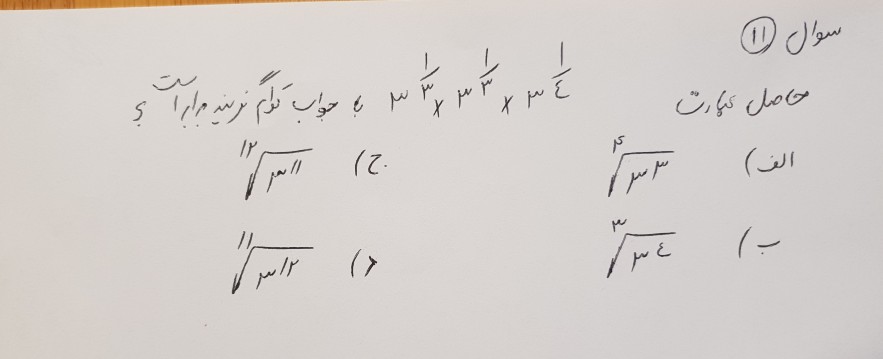 سوال ۱۱
حاصل عبارت ۳^{۱/۳} × ۳^{۱/۳} × ۳^{۱/٤} با جواب کدام گزینه برابر است ؟
الف) ∜۳۳ ج) ¹²√۳۱۱
ب) ∛۳٤ د) ¹¹√۳۱۲